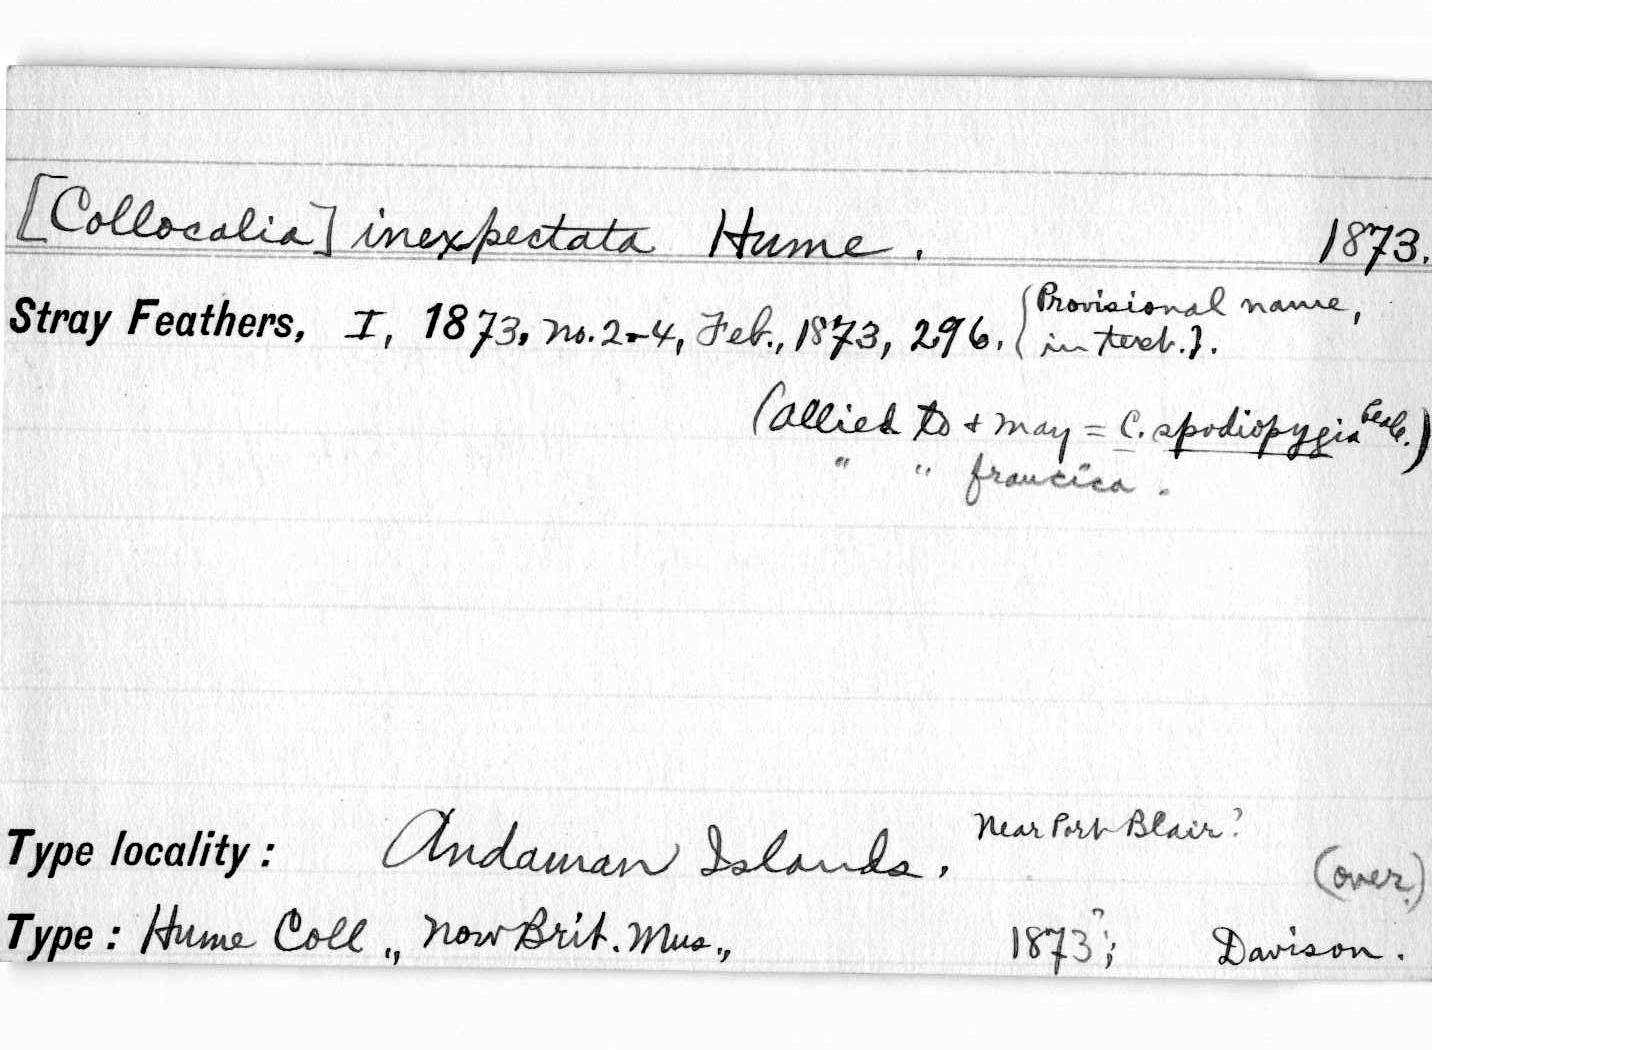 [Collocalia] inexpectata Hume. 1873.
Stray Feathers, I, 1873, no. 2-4, Feb., 1873, 296. {Provisional name,
in text.}.
(allied to + may = C. spodiopygia Peale.)
" " francica.
Type locality: Andaman Islands, Near Port Blair?
(over.)
Type: Hume Coll., now Brit. Mus., 1873?; Davison.